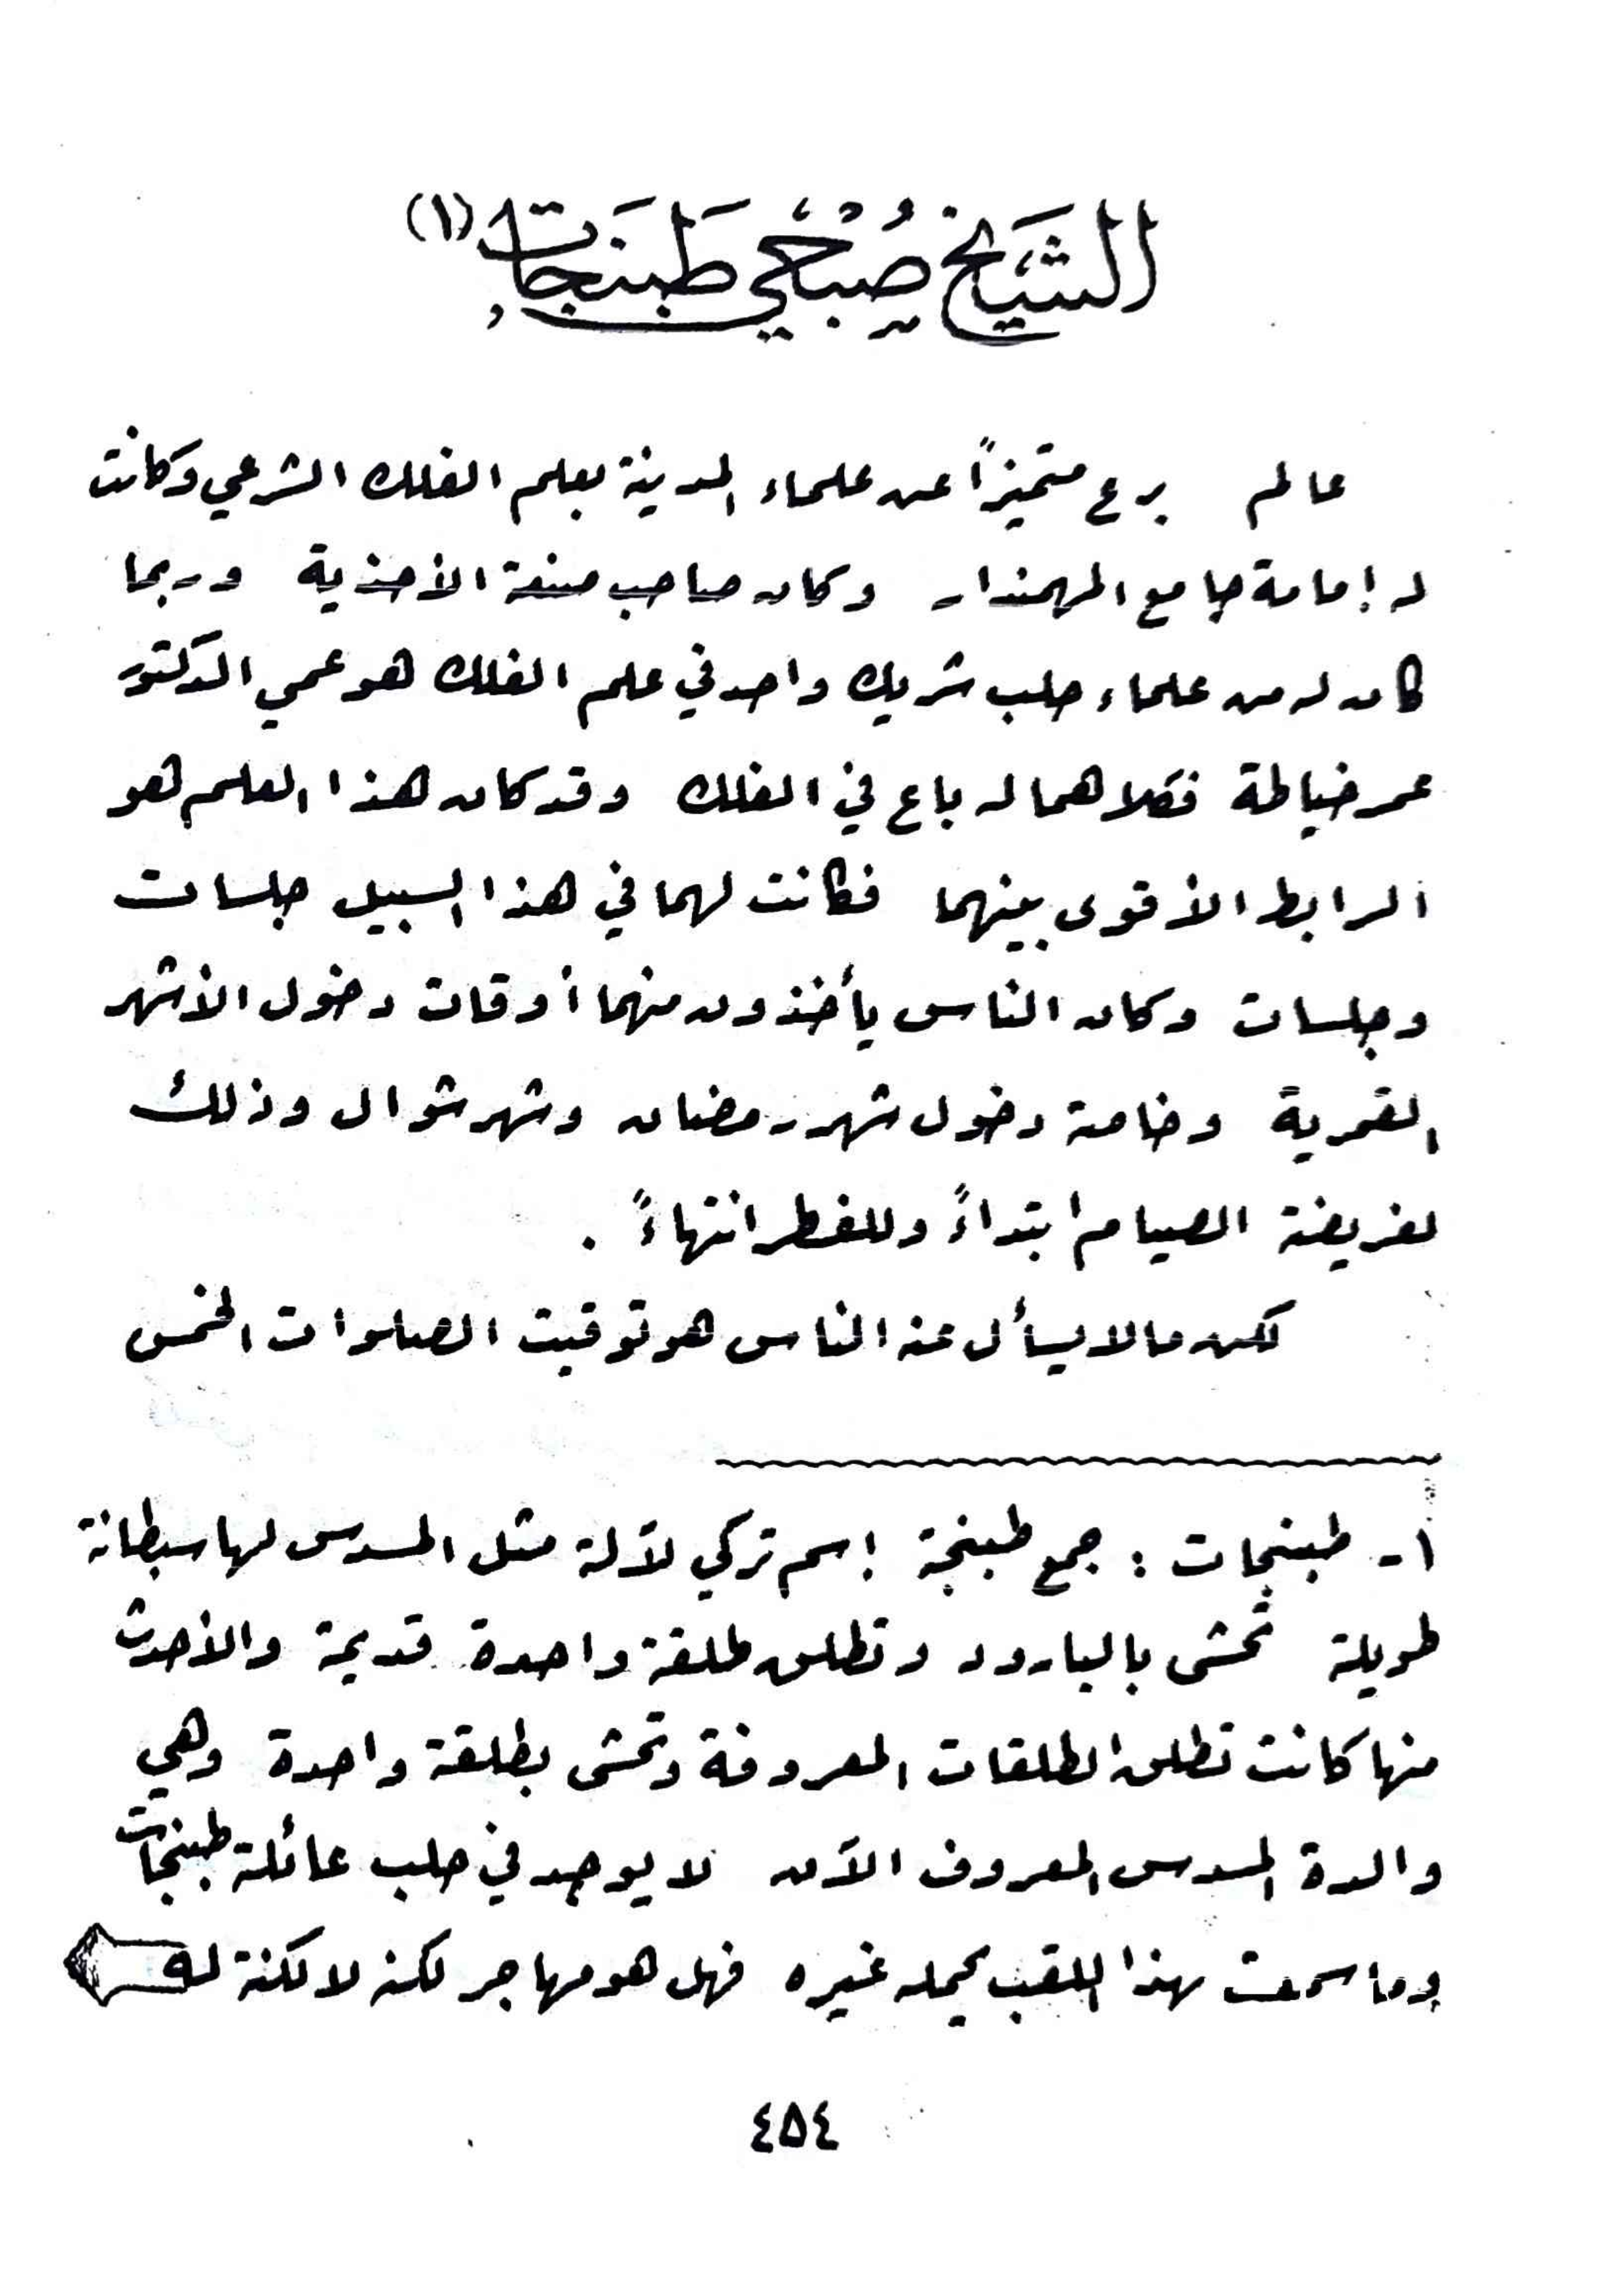 الشَّيخ صُبْحي طَبَنجَات (١)
عالم برع متميزاً عن علماء المدينة بعلم الفلك الشرعي وكانت
له إمامة جامع المهمندار وكان صاحب صنعة الأحذية وربما
كان له من علماء حلب شريك واحد في علم الفلك هو عمي الدكتور
عمر خياطة فكلاهما له باع في الفلك وقد كان هذا العلم هو
الرابط الأقوى بينهما فكانت لهما في هذا السبيل جلسات
وجلسات وكان الناس يأخذون منهما أوقات دخول الأشهر
القمرية وخاصة دخول شهر رمضان وشهر شوال وذلك
لفريضة الصيام ابتداءً وللفطر انتهاءً .
لكن ما لا يسأل عنه الناس هو توقيت الصلوات الخمس
١- طبنجات : جمع طبنجة اسم تركي لآلة مثل المسدس لها سبطانة
طويلة تحشى بالبارود وتطلق طلقة واحدة قديمة والأحدث
منها كانت تطلق الطلقات المعروفة وتحشى بطلقة واحدة وهي
والدة المسدس المعروف الآن لا يوجد في حلب عائلة طبنجات
وما سمعت بهذا اللقب يحمله غيره فهل هو مهاجر لكنه لا لكنة له
٤٥٤